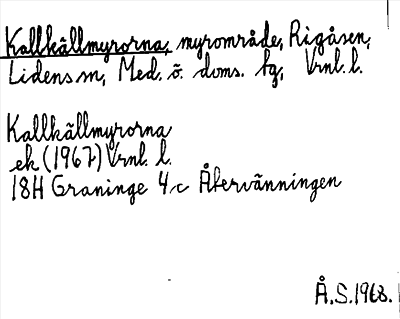 Kallkällmyrorna, myrområde, Rigåsen,
Lidens sn, Med. ö. doms. tg, Vrnl. l.
Kallkällmyrorna
ek (1967) Vrnl. l.
18H Graninge 4c Återvänningen
Å.S. 1968.